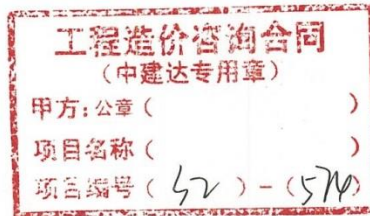 工程造价咨询合同
（中建达专用章）
甲方：公章（ ）
项目名称（ ）
项目编号（52）－（574）